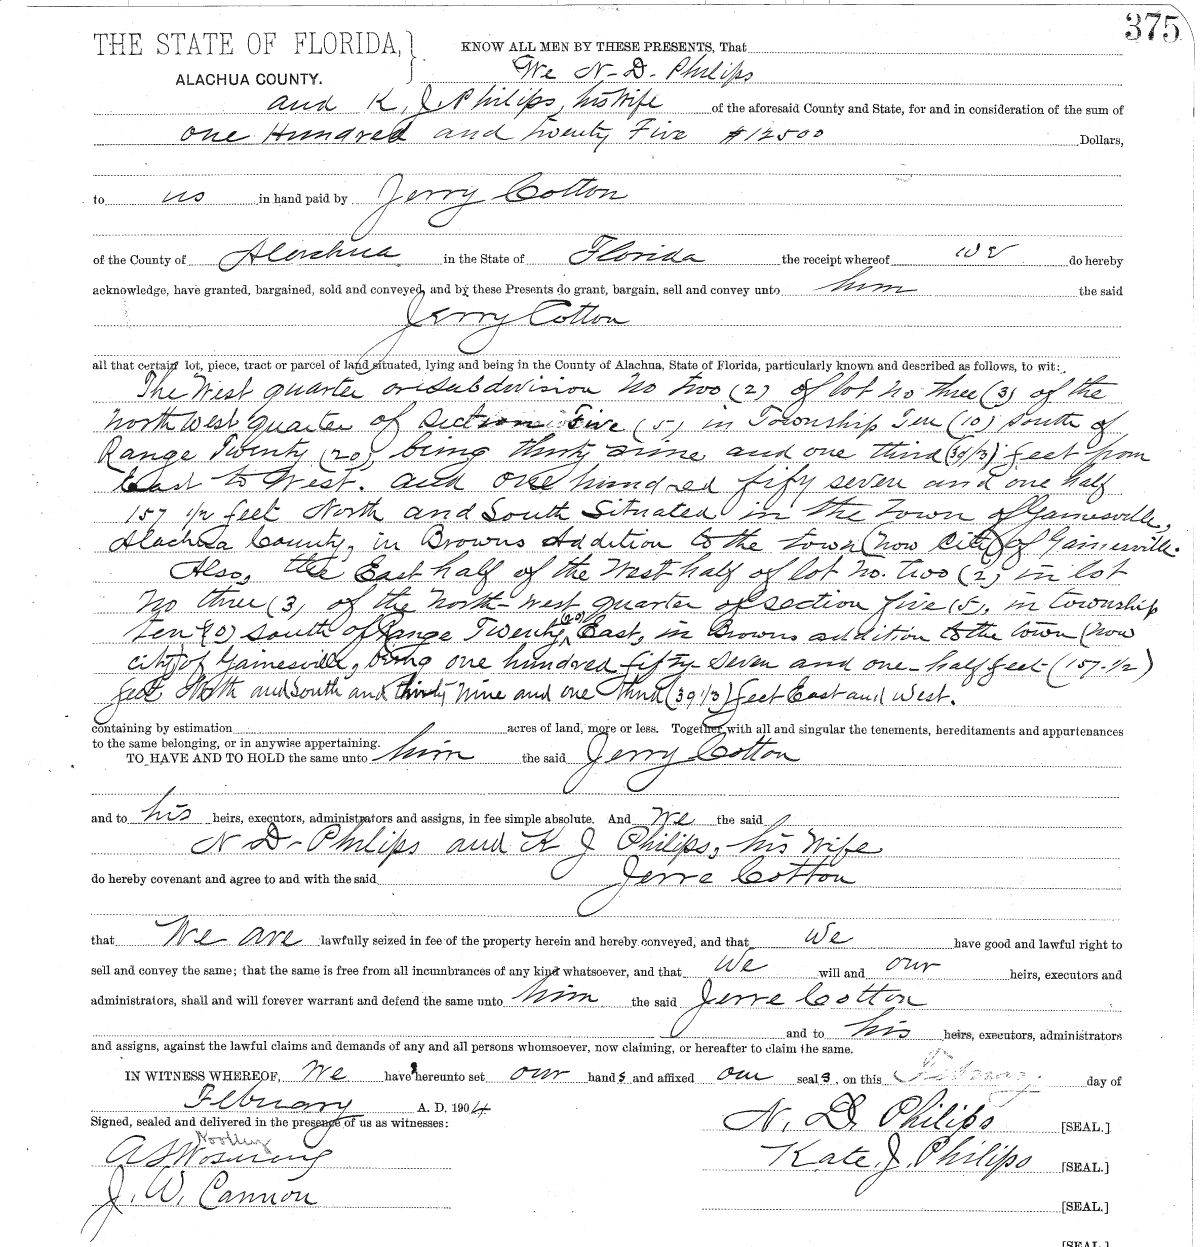 375
THE STATE OF FLORIDA, } KNOW ALL MEN BY THESE PRESENTS, That
ALACHUA COUNTY. We N. D. Philips
and K. J. Philips, his Wife of the aforesaid County and State, for and in consideration of the sum of
one Hundred and twenty Five $12500 Dollars,
to us in hand paid by Jerry Cotton
of the County of Alachua in the State of Florida the receipt whereof we do hereby
acknowledge, have granted, bargained, sold and conveyed, and by these Presents do grant, bargain, sell and convey unto him the said
Jerry Cotton
all that certain lot, piece, tract or parcel of land situated, lying and being in the County of Alachua, State of Florida, particularly known and described as follows, to wit:
The West quarter or subdivision No two (2) of lot no three (3) of the
North West quarter of section Five (5) in Township Ten (10) South of
Range Twenty (20), being thirty nine and one third (39 1/3) feet from
East to West. and one hundred fifty seven and one half
157 1/2 feet North and South Situated in the town of Gainesville,
Alachua County, in Browns Addition to the town (now City) of Gainesville.
Also, the East half of the West half of lot No. two (2) in lot
No three (3) of the North-west quarter of section five (5), in township
ten (10) South of Range Twenty (20) East, in Browns addition to the town (now
city) of Gainesville, being one hundred fifty-seven and one-half feet (157-1/2)
feet North and South and thirty nine and one third (39 1/3) feet East and West.
containing by estimation acres of land, more or less. Together with all and singular the tenements, hereditaments and appurtenances
to the same belonging, or in anywise appertaining.
TO HAVE AND TO HOLD the same unto him the said Jerry Cotton
and to his heirs, executors, administrators and assigns, in fee simple absolute. And We the said
N D. Philips and K J Philips, his Wife
do hereby covenant and agree to and with the said Jerre Cotton
that We are lawfully seized in fee of the property herein and hereby conveyed, and that We have good and lawful right to
sell and convey the same; that the same is free from all incumbrances of any kind whatsoever, and that We will and our heirs, executors and
administrators, shall and will forever warrant and defend the same unto him the said Jerre Cotton
and to his heirs, executors, administrators
and assigns, against the lawful claims and demands of any and all persons whomsoever, now claiming, or hereafter to claim the same.
IN WITNESS WHEREOF, We have hereunto set our hands and affixed our seals, on this February day of
February A. D. 1904
Signed, sealed and delivered in the presence of us as witnesses: N. D. Philips [SEAL.]
Kate. J. Philips [SEAL.]
J. W. Cannon [SEAL.]
[SEAL.]